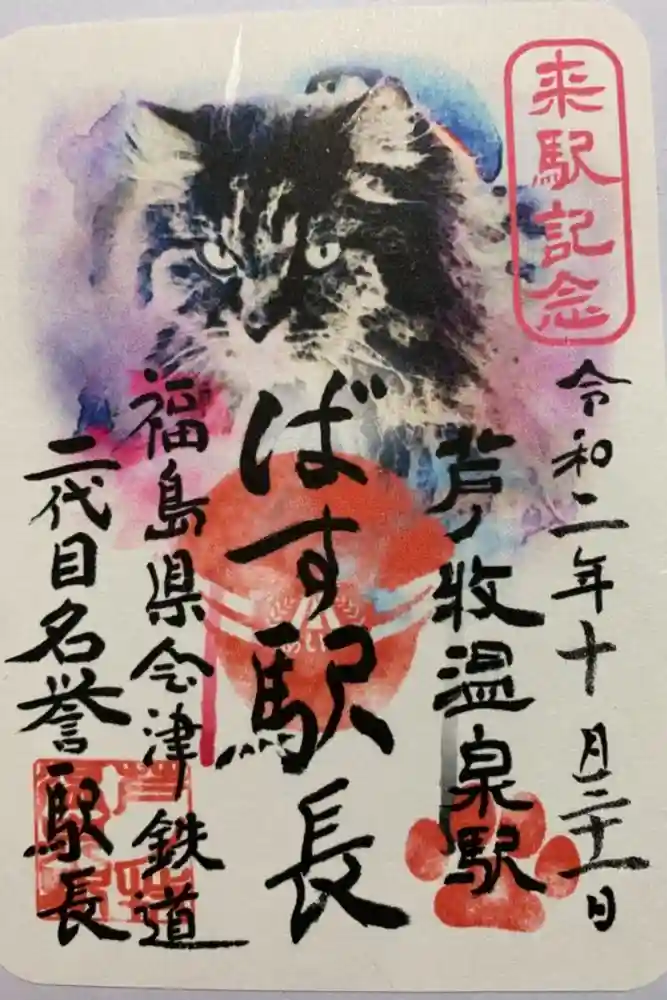 来駅記念
令和二年十月三十一日
芦ノ牧温泉駅
ばす駅長
福島県会津鉄道
二代目名誉駅長